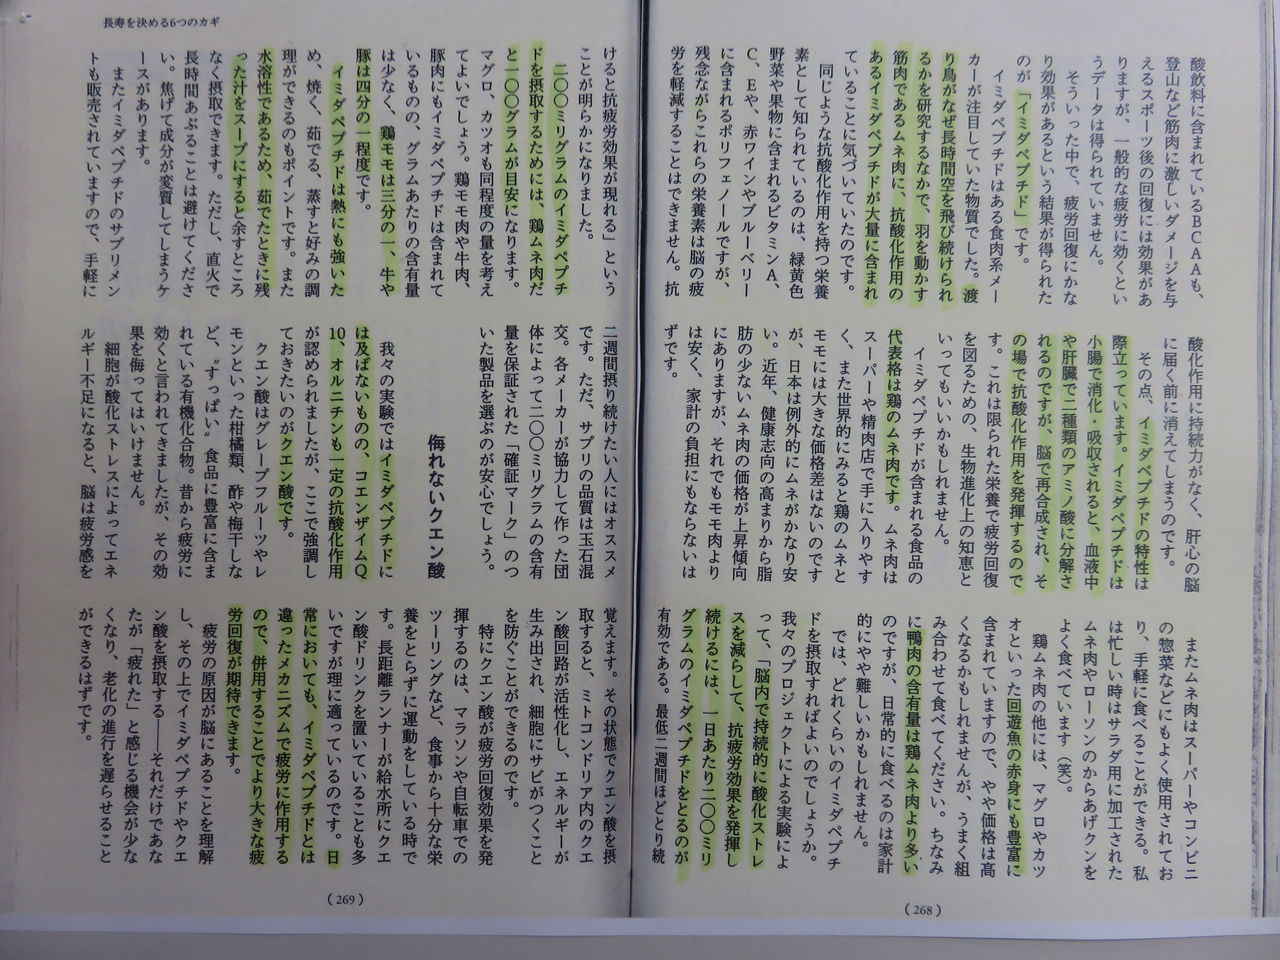 酸飲料に含まれているBCAAも、
登山など筋肉に激しいダメージを与
えるスポーツ後の回復には効果があ
りますが、一般的な疲労に効くとい
うデータは得られていません。
そういった中で、疲労回復にかな
り効果があるという結果が得られた
のが「イミダペプチド」です。
イミダペプチドはある食肉系メー
カーが注目していた物質でした。渡
り鳥がなぜ長時間空を飛び続けられ
るかを研究するなかで、羽を動かす
筋肉であるムネ肉に、抗酸化作用の
あるイミダペプチドが大量に含まれ
ていることに気づいていたのです。
同じような抗酸化作用を持つ栄養
素として知られているのは、緑黄色
野菜や果物に含まれるビタミンA、
C、Eや、赤ワインやブルーベリー
に含まれるポリフェノールですが、
残念ながらこれらの栄養素は脳の疲
労を軽減することはできません。抗
酸化作用に持続力がなく、肝心の脳
に届く前に消えてしまうのです。
その点、イミダペプチドの特性は
際立っています。イミダペプチドは
小腸で消化・吸収されると、血液中
や肝臓で二種類のアミノ酸に分解さ
れるのですが、脳で再合成され、そ
の場で抗酸化作用を発揮するので
す。これは限られた栄養で疲労回復
を図るための、生物進化上の知恵と
いってもいいかもしれません。
イミダペプチドが含まれる食品の
代表格は鶏のムネ肉です。ムネ肉は
スーパーや精肉店で手に入りやす
く、また世界的にみると鶏のムネと
モモには大きな価格差はないのです
が、日本は例外的にムネがかなり安
い。近年、健康志向の高まりから脂
肪の少ないムネ肉の価格が上昇傾向
にありますが、それでもモモ肉より
は安く、家計の負担にもならないは
ずです。
またムネ肉はスーパーやコンビニ
の惣菜などにもよく使用されてお
り、手軽に食べることができる。私
は忙しい時はサラダ用に加工された
ムネ肉やローソンのからあげクンを
よく食べています（笑）。
鶏ムネ肉の他には、マグロやカツ
オといった回遊魚の赤身にも豊富に
含まれていますので、やや価格は高
くなるかもしれませんが、うまく組
み合わせて食べてください。ちなみ
に鴨肉の含有量は鶏ムネ肉より多い
のですが、日常的に食べるのは家計
的にやや難しいかもしれません。
では、どれくらいのイミダペプチ
ドを摂取すればよいのでしょうか。
我々のプロジェクトによる実験によ
って、「脳内で持続的に酸化ストレ
スを減らして、抗疲労効果を発揮し
続けるには、一日あたり二〇〇ミリ
グラムのイミダペプチドをとるのが
有効である。最低二週間ほどとり続
(268)
長寿を決める6つのカギ
けると抗疲労効果が現れる」という
ことが明らかになりました。
二〇〇ミリグラムのイミダペプチ
ドを摂取するためには、鶏ムネ肉だ
と一〇〇グラムが目安になります。
マグロ、カツオも同程度の量を考え
てよいでしょう。鶏モモ肉や牛肉、
豚肉にもイミダペプチドは含まれて
いるものの、グラムあたりの含有量
は少なく、鶏モモは三分の一、牛や
豚は四分の一程度です。
イミダペプチドは熱にも強いた
め、焼く、茹でる、蒸すと好みの調
理ができるのもポイントです。また
水溶性であるため、茹でたときに残
った汁をスープにすると余すところ
なく摂取できます。ただし、直火で
長時間あぶることは避けてくださ
い。焦げて成分が変質してしまうケ
ースがあります。
またイミダペプチドのサプリメン
トも販売されていますので、手軽に
二週間摂り続けたい人にはオススメ
です。ただ、サプリの品質は玉石混
交。各メーカーが協力して作った団
体によって二〇〇ミリグラムの含有
量を保証された「確証マーク」のつ
いた製品を選ぶのが安心でしょう。
侮れないクエン酸
我々の実験ではイミダペプチドに
は及ばないものの、コエンザイムQ
10、オルニチンも一定の抗酸化作用
が認められましたが、ここで強調し
ておきたいのがクエン酸です。
クエン酸はグレープフルーツやレ
モンといった柑橘類、酢や梅干しな
ど、〝すっぱい〟食品に豊富に含ま
れている有機化合物。昔から疲労に
効くと言われてきましたが、その効
果を侮ってはいけません。
細胞が酸化ストレスによってエネ
ルギー不足になると、脳は疲労感を
覚えます。その状態でクエン酸を摂
取すると、ミトコンドリア内のクエ
ン酸回路が活性化し、エネルギーが
生み出され、細胞にサビがつくこと
を防ぐことができるのです。
特にクエン酸が疲労回復効果を発
揮するのは、マラソンや自転車での
ツーリングなど、食事から十分な栄
養をとらずに運動をしている時で
す。長距離ランナーが給水所にクエ
ン酸ドリンクを置いていることも多
いですが理に適っているのです。日
常においても、イミダペプチドとは
違ったメカニズムで疲労に作用する
ので、併用することでより大きな疲
労回復が期待できます。
疲労の原因が脳にあることを理解
し、その上でイミダペプチドやクエ
ン酸を摂取する――それだけであな
たが「疲れた」と感じる機会が少な
くなり、老化の進行を遅らせること
ができるはずです。
(269)